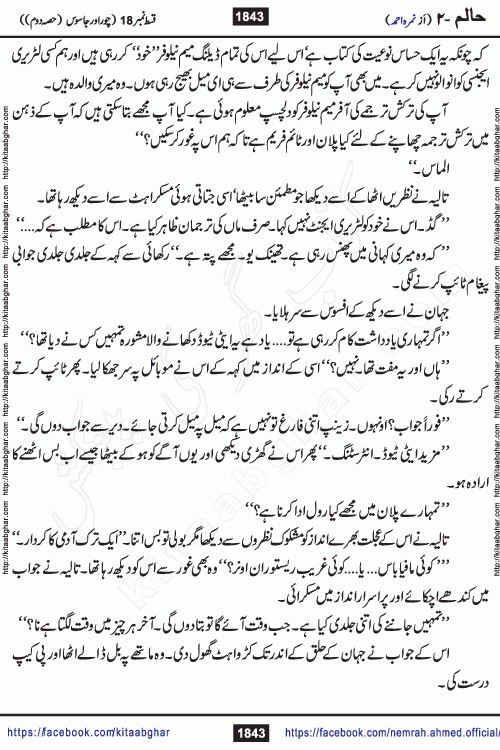 حالم -۲ (از نمرہ احمد) 1843 قسط نمبر 18 (چور اور جاسوس (حصہ دوم))
کہ چونکہ یہ ایک حساس نوعیت کی کتاب ہے' اس لیے اس کی تمام ڈیلنگ میم نیلوفر ''خود'' کر رہی ہیں اور ہم کسی لٹریری
ایجنسی کو انوالو نہیں کر رہے۔ میں بھی آپ کو میم نیلوفر کی طرف سے ہی ای میل بھیج رہی ہوں۔ وہ میری والدہ ہیں۔
آپ کی ترکش ترجمے کی آفر میم نیلوفر کو دلچسپ معلوم ہوئی ہے۔ کیا آپ مجھے بتا سکتی ہیں کہ آپ کے ذہن
میں ترکش ترجمہ چھاپنے کے لئے کیا پلان اور ٹائم فریم ہے تاکہ ہم اس پہ غور کر سکیں؟''
الماس۔''
تالیہ نے نظریں اٹھا کے اسے دیکھا جو مطمئن سا بیٹھا' اسی جتاتی ہوئی مسکراہٹ سے اسے دیکھ رہا تھا۔
''گڈ۔ اس نے خود کو لٹریری ایجنٹ نہیں کہا۔ صرف ماں کی ترجمان ظاہر کیا ہے۔ اس کا مطلب ہے کہ....''
''کہ وہ میری کہانی میں پھنس رہی ہے۔ تھینک یو۔ مجھے پتہ ہے۔'' رکھائی سے کہہ کے جلدی جلدی جوابی
پیغام ٹائپ کرنے لگی۔
جہان نے اسے دیکھ کے افسوس سے سر ہلایا۔
''اگر تمہاری یادداشت کام کر رہی ہے تو.... یاد ہے یہ ایٹی ٹیوڈ دکھانے والا مشورہ تمہیں کس نے دیا تھا؟''
''ہاں اور یہ مفت تھا۔ نہیں؟'' اسی کے انداز میں کہہ کے اس نے موبائل پہ سر جھکا لیا۔ پھر ٹائپ کرتے
کرتے رکی۔
''فوراً جواب؟ اونہوں۔ زینپ اتنی فارغ تو نہیں ہے کہ میل پہ میل کرتی جائے۔ دیر سے جواب دوں گی۔''
''مزید ایٹی ٹیوڈ۔ انٹرسٹنگ۔'' پھر اس نے گھڑی دیکھی اور یوں آگے کو ہو کے بیٹھا جیسے اب بس اٹھنے کا
ارادہ ہو۔
''تمہارے پلان میں مجھے کیا رول ادا کرنا ہے؟''
تالیہ نے اس کے عجلت بھرے انداز کو مشکوک نظروں سے دیکھا مگر بولی تو بس اتنا۔ ''ایک ترک آدمی کا کردار۔''
'''کوئی مافیا باس... یا.... کوئی غریب ریسٹوران اونر؟'' وہ بھی غور سے اس کو دیکھ رہا تھا۔ تالیہ نے جواب
میں کندھے اچکائے اور پراسرار انداز میں مسکرائی۔
''تمہیں جاننے کی اتنی جلدی کیا ہے۔ جب وقت آئے گا تو بتا دوں گی۔ آخر ہر چیز میں وقت لگتا ہے نا؟''
اس کے جواب نے جہان کے حلق کے اندر تک کڑواہٹ گھول دی۔ وہ ماتھے پہ بل ڈالے اٹھا اور پی کیپ
درست کی۔
https://facebook.com/kitaabghar 1843 https://facebook.com/nemrah.ahmed.official/
http://kitaabghar.com http://kitaabghar.com http://kitaabghar.com http://kitaabghar.com http://kitaabghar.com
http://kitaabghar.com http://kitaabghar.com http://kitaabghar.com http://kitaabghar.com http://kitaabghar.com